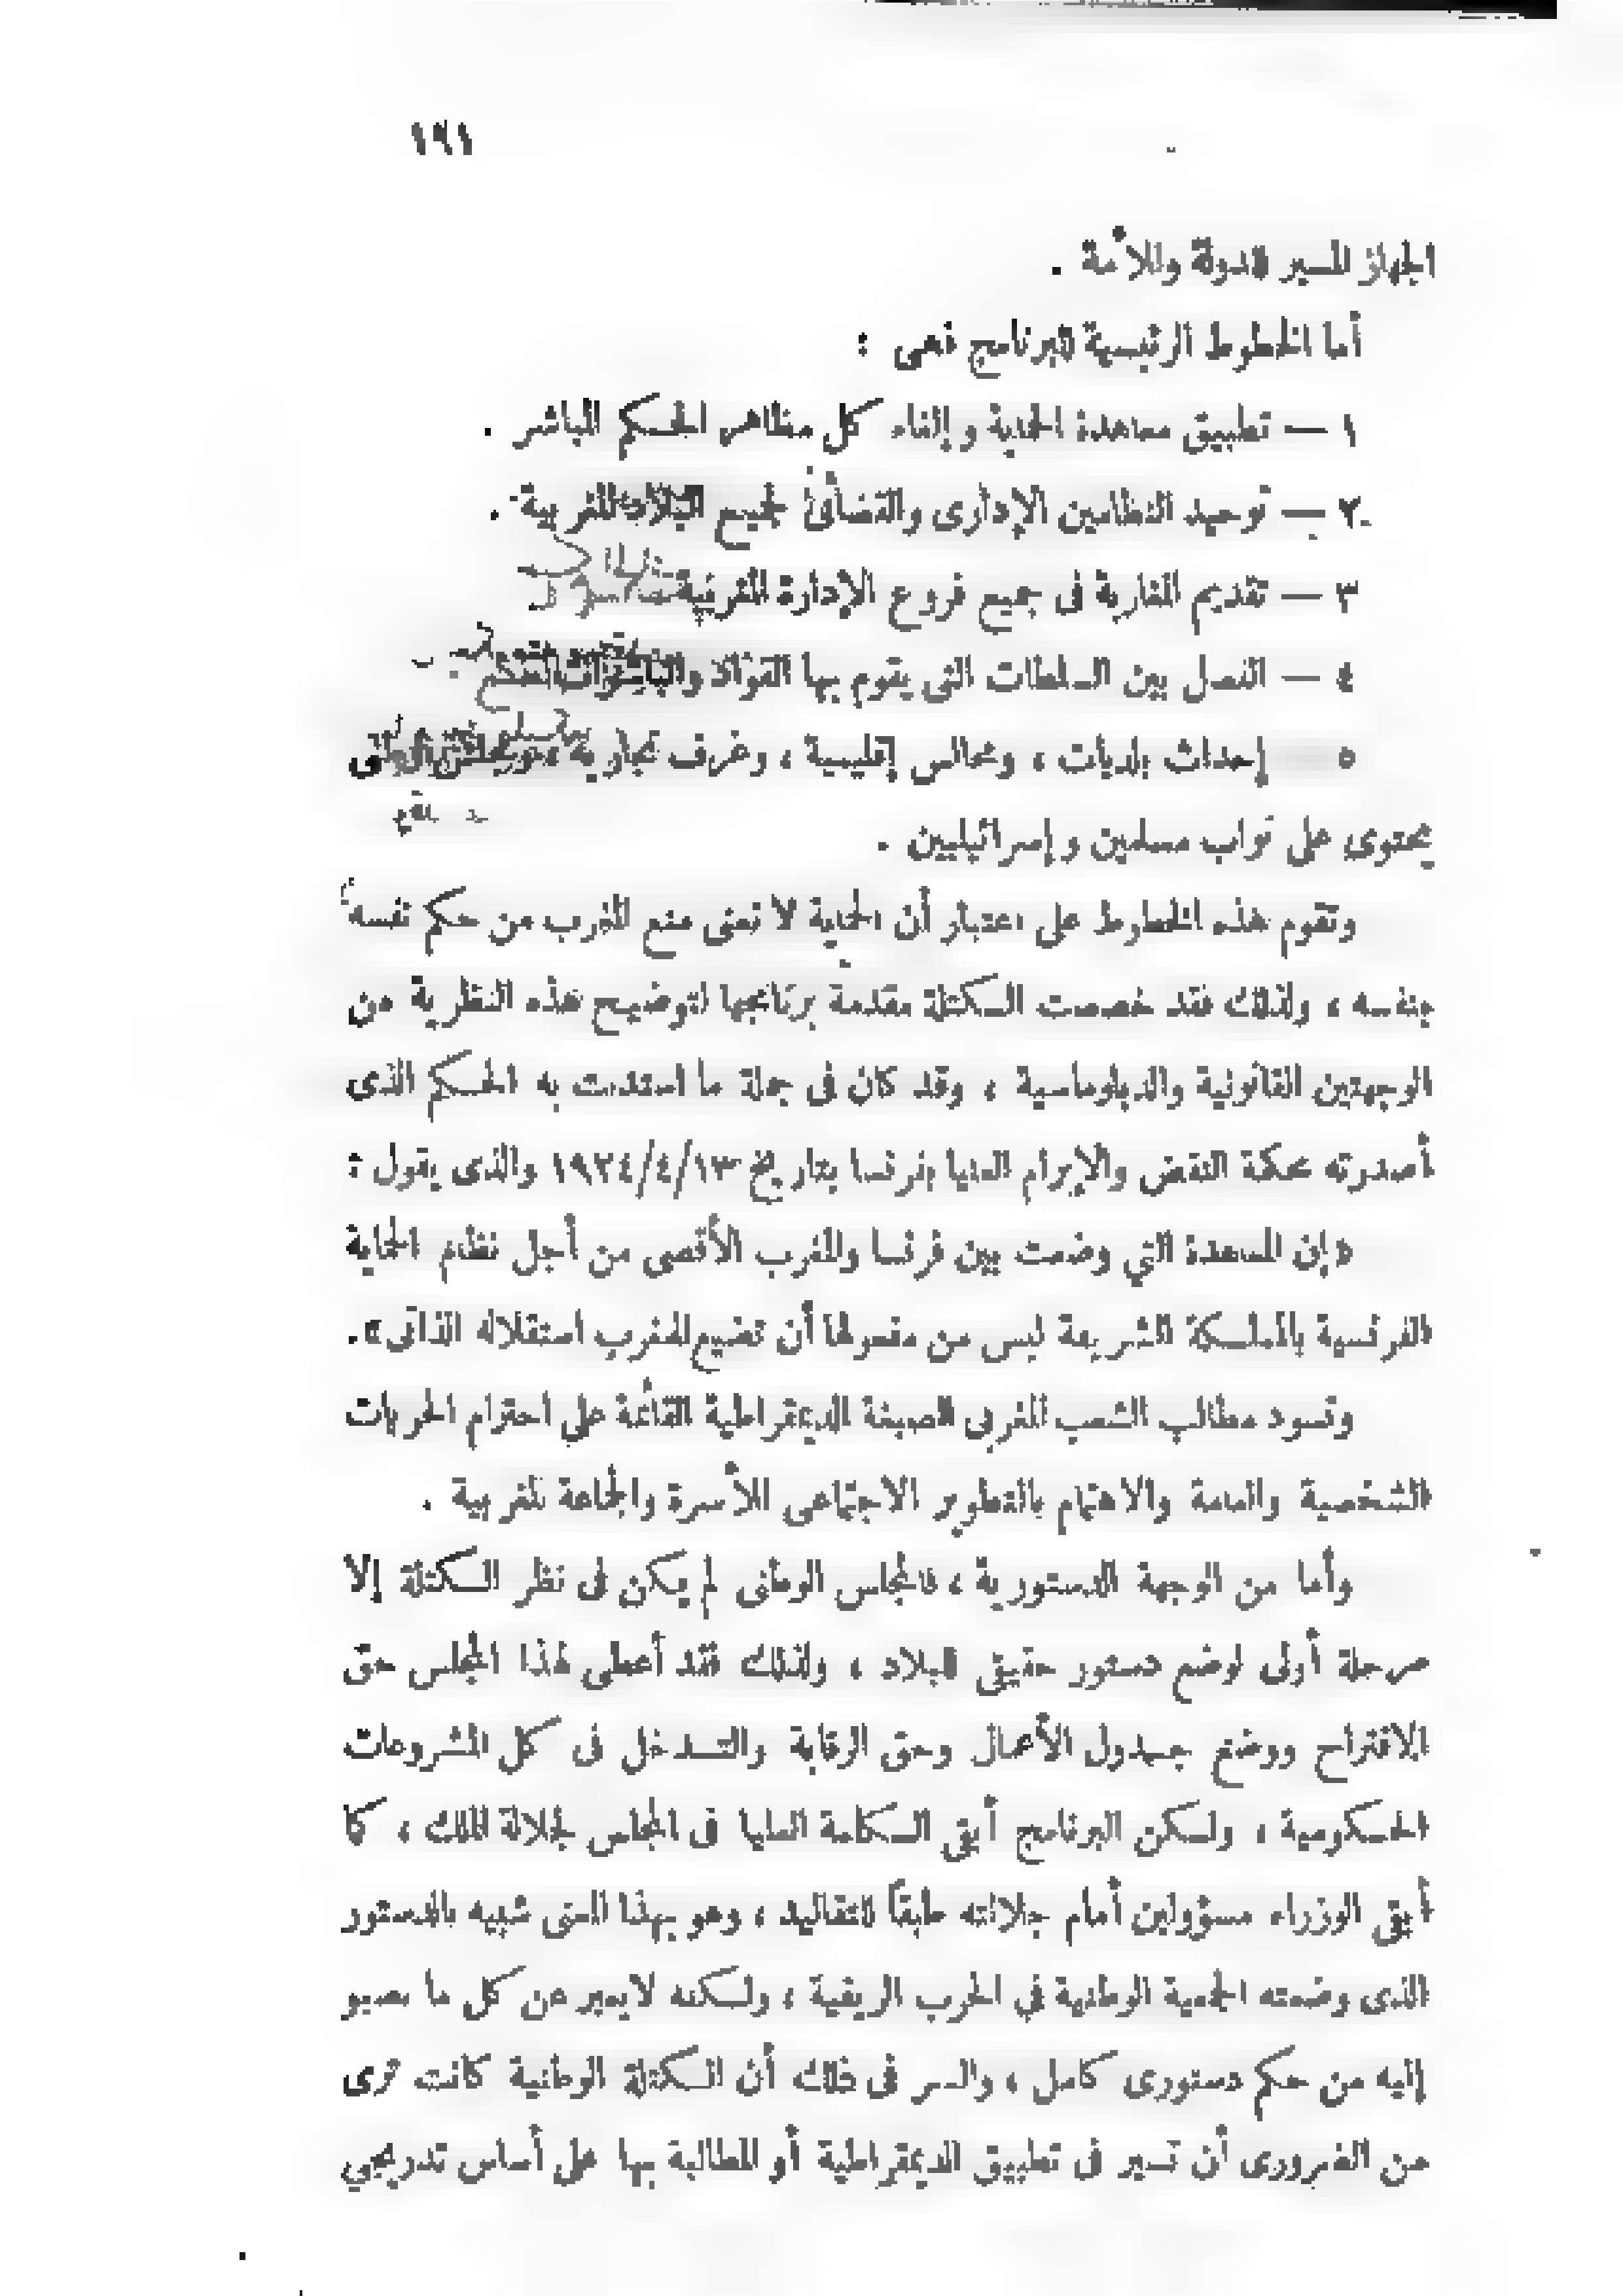 ١٩١
الجهاز المسير للدولة وللأمة .
أما الخطوط الرئيسية للبرنامج فهى :
١ — تطبيق معاهدة الحماية وإلغاء كل مظاهر الحكم المباشر .
٢ — توحيد النظامين الإدارى والقضائى لجميع البلاد المغربية .
٣ — تقديم المغاربة فى جميع فروع الإدارة المغربية
٤ — الفصل بين السلطات التى يقوم بها القواد والباشوات
٥ — إحداث بلديات ، ومجالس إقليمية ، وغرف تجارية ، ومجلس وطنى
يحتوى على نواب مسلمين وإسرائيليين .
وتقوم هذه الخطوط على اعتبار أن الحماية لا تعنى منع المغرب من حكم نفسه
بنفسه ، ولذلك فقد خصصت الكتلة مقدمة برنامجها لتوضيح هذه النظرية من
الوجهتين القانونية والدبلوماسية ، وقد كان فى جملة ما استدلت به الحكم الذى
أصدرته محكمة النقض والإبرام العليا بفرنسا بتاريخ ١٩٢٤/٤/١٣ والذى يقول :
«إن المعاهدة التي وضعت بين فرنسا والمغرب الأقصى من أجل نظام الحماية
الفرنسية بالمملكة الشريفة ليس من مفعولها أن تضيع للمغرب استقلاله الذاتى» .
وتسود مطالب الشعب المغربى الصبغة الديمقراطية القائمة على احترام الحريات
الشخصية والعامة والاهتمام بالتطوير الاجتماعى للأسرة والجماعة المغربية .
وأما من الوجهة الدستورية ، فالمجلس الوطنى لم يكن فى نظر الكتلة إلا
مرحلة أولى لوضع دستور حقيقى للبلاد ، ولذلك فقد أعطى لهذا المجلس حق
الاقتراح ووضع جدول الأعمال وحق الرقابة والتدخل فى كل المشروعات
الحكومية ، ولكن البرنامج أبقى الكلمة العليا فى المجلس لجلالة الملك ، كما
أبقى الوزراء مسؤولين أمام جلالته طبقاً للتقاليد ، وهو بهذا المعنى شبيه بالدستور
الذى وضعته الجمعية الوطنية في الحرب الريفية ، ولكنه لا يعبر عن كل ما نصبو
إليه من حكم دستورى كامل ، والسر فى ذلك أن الكتلة الوطنية كانت ترى
من الضرورى أن تسير فى تطبيق الديمقراطية أو المطالبة بها على أساس تدريجي